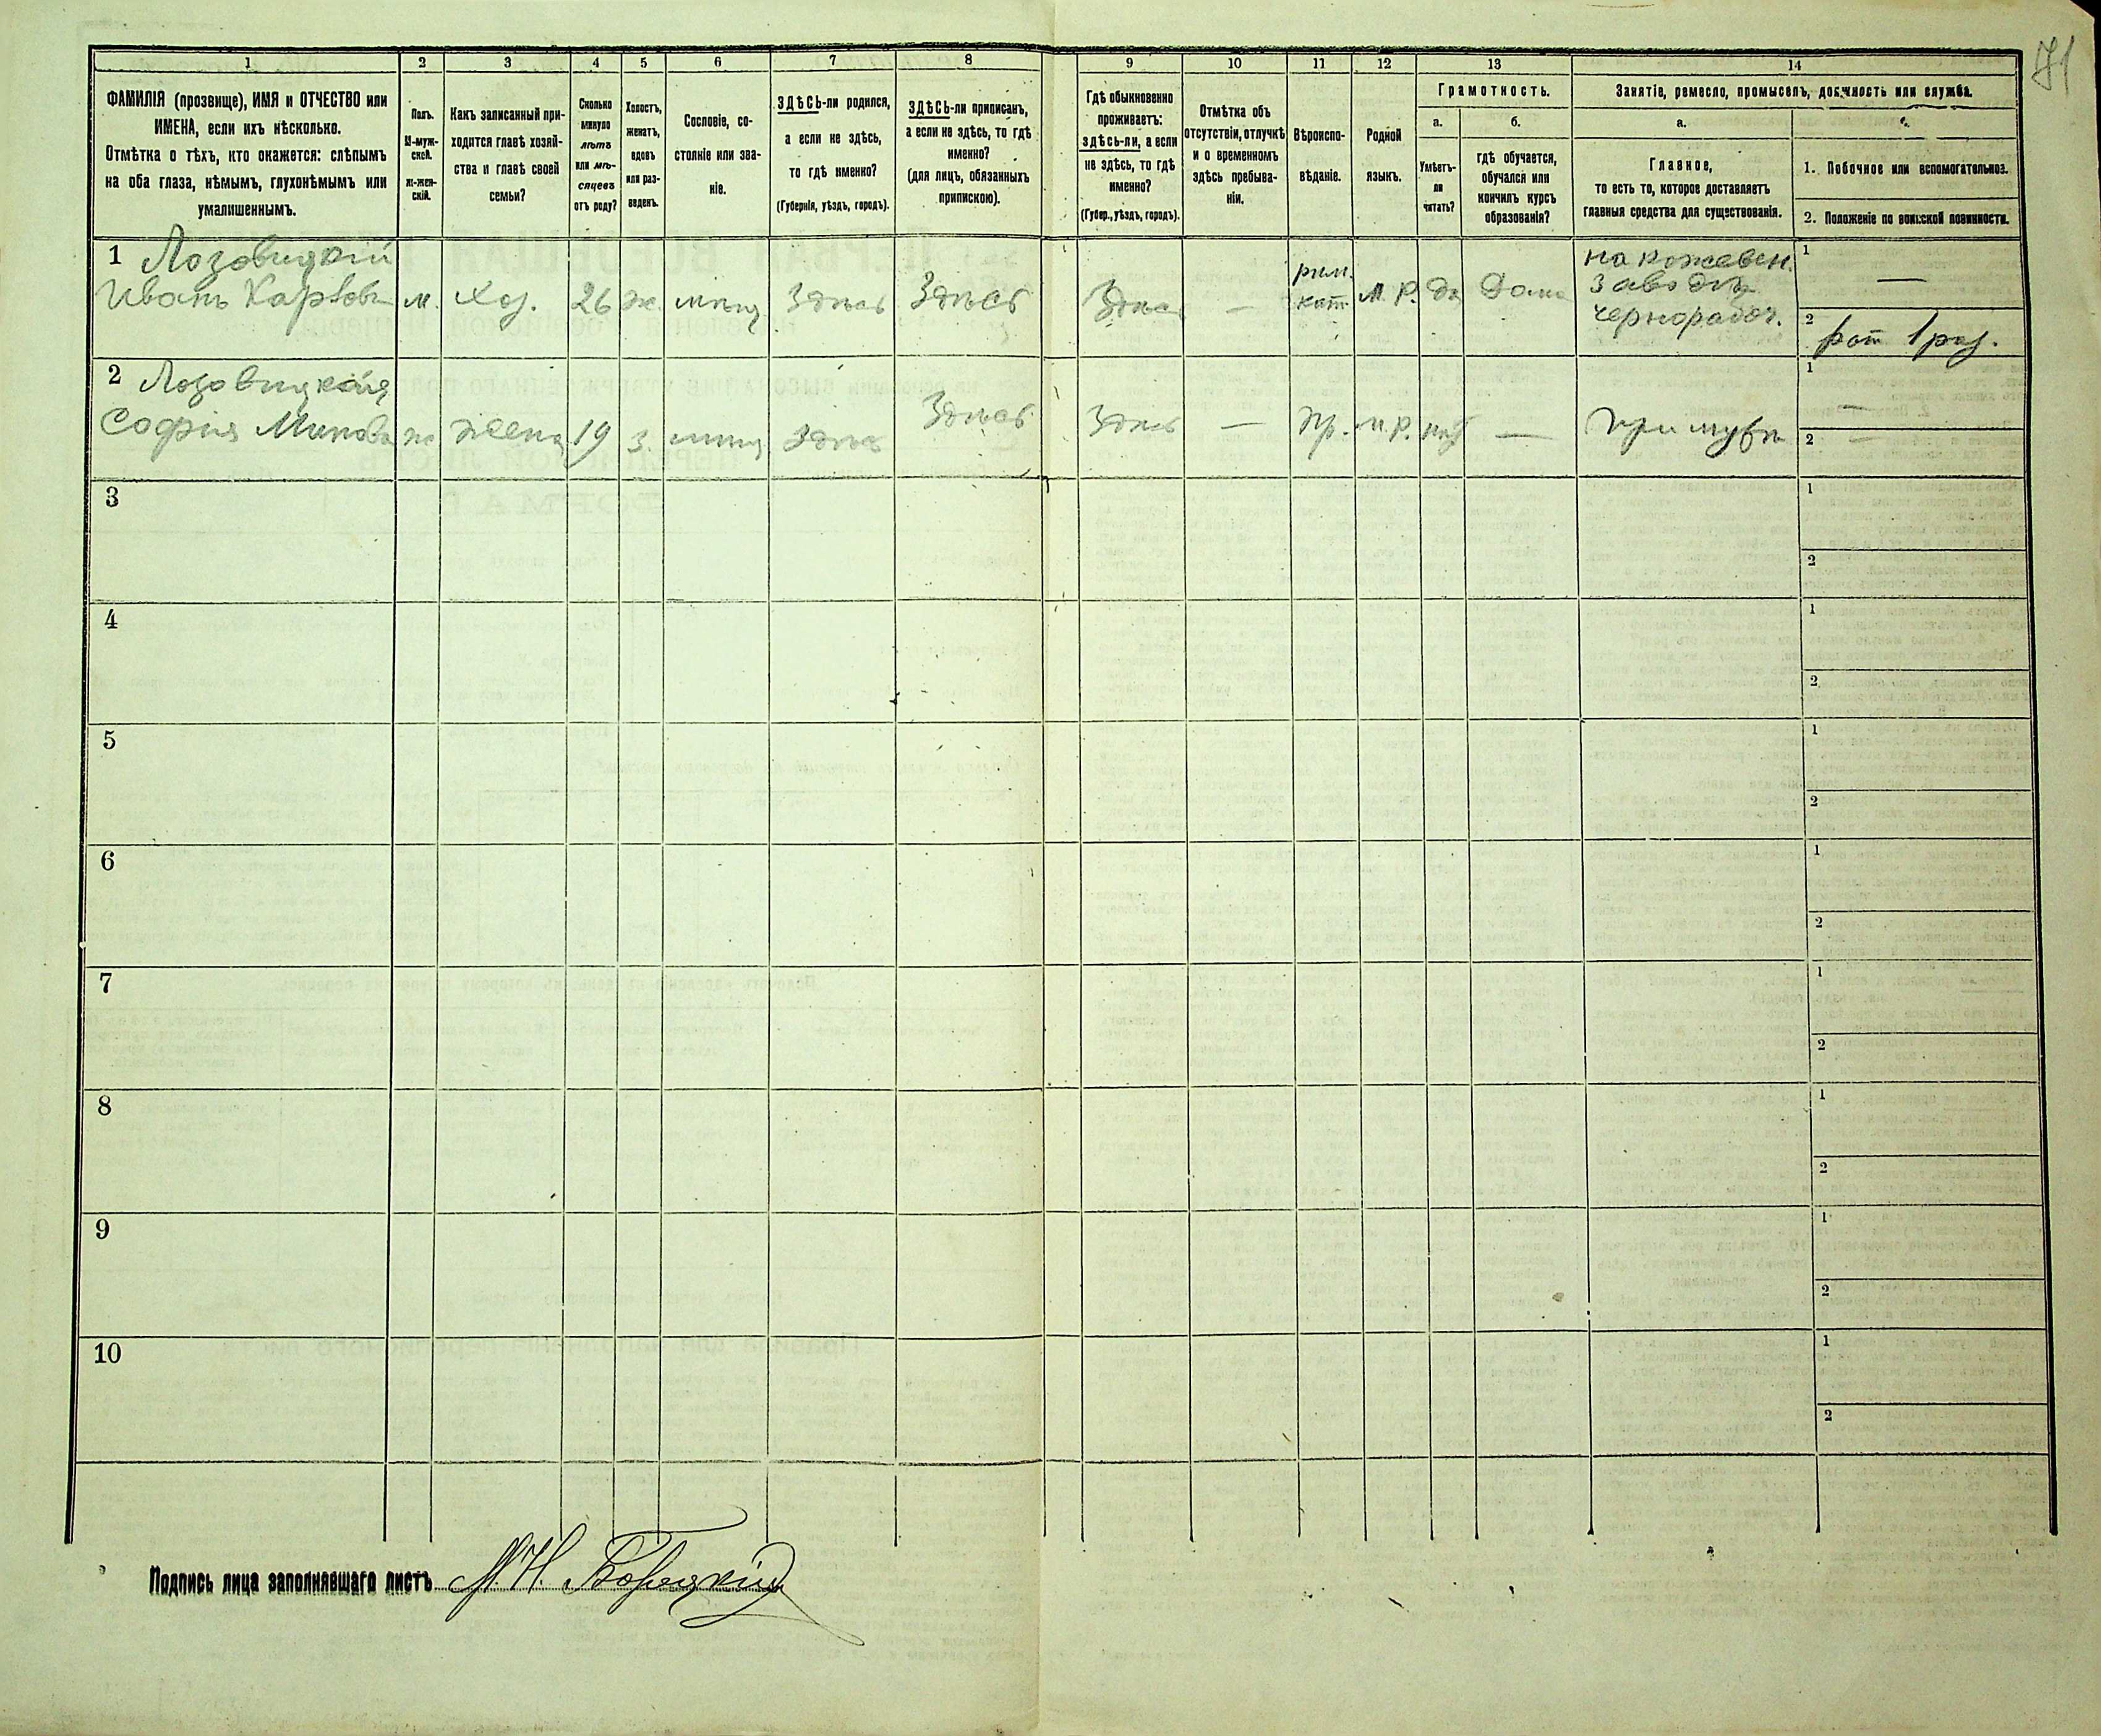 71
1 2 3 4 5 6 7 8 9 10 11 12 13 14
ФАМИЛІЯ (прозвище), ИМЯ и ОТЧЕСТВО или
ИМЕНА, если ихъ нѣсколько.
Отмѣтка о тѣхъ, кто окажется: слѣпымъ
на оба глаза, нѣмымъ, глухонѣмымъ или
умалишеннымъ.
Полъ.
М-муж-
ской.
ж-жен-
скій.
Какъ записанный при-
ходится главѣ хозяй-
ства и главѣ своей
семьи?
Сколько
минуло
лѣтъ
или мѣ-
сяцевъ
отъ роду?
Холостъ,
женатъ,
вдовъ
или раз-
веденъ.
Сословіе, со-
стояніе или зва-
ніе.
ЗДѢСЬ-ли родился,
а если не здѣсь,
то гдѣ именно?
(Губернія, уѣздъ, городъ).
ЗДѢСЬ-ли приписанъ,
а если не здѣсь, то гдѣ
именно?
(для лицъ, обязанныхъ
припискою).
Гдѣ обыкновенно
проживаетъ:
здѣсь-ли, а если
не здѣсь, то гдѣ
именно?
(Губер., уѣздъ, городъ).
Отмѣтка объ
отсутствіи, отлучкѣ
и о временномъ
здѣсь пребыва-
ніи.
Вѣроиспо-
вѣданіе.
Родной
языкъ.
Грамотность.
а.
Умѣетъ-
ли
читать?
б.
гдѣ обучается,
обучался или
кончилъ курсъ
образованія?
Занятіе, ремесло, промыселъ, должность или служба.
а.
Главное,
то есть то, которое доставляетъ
главныя средства для существованія.
1. Побочное или вспомогательное.
2. Положеніе по воинской повинности.
1 Лозовицкій
Иванъ Карлов
м.
Хоз.
26
ж.
мѣщ
Здѣсь
Здѣсь
Здѣсь
—
рим.
кат.
м. р.
да
Дома
на кожевен.
заводѣ
чернорабоч.
1 —
2 рат 1 раз.
2 Лозовицкая
София
ж
жена
19
з.
мѣщ
Здѣсь
Здѣсь
Здѣсь
—
пр.
м. р.
нѣт
—
при мужѣ
1 —
2 —
3 1 2
4 1 2
5 1 2
6 1 2
7 1 2
8 1 2
9 1 2
10 1 2
Подпись лица заполнявшаго листъ